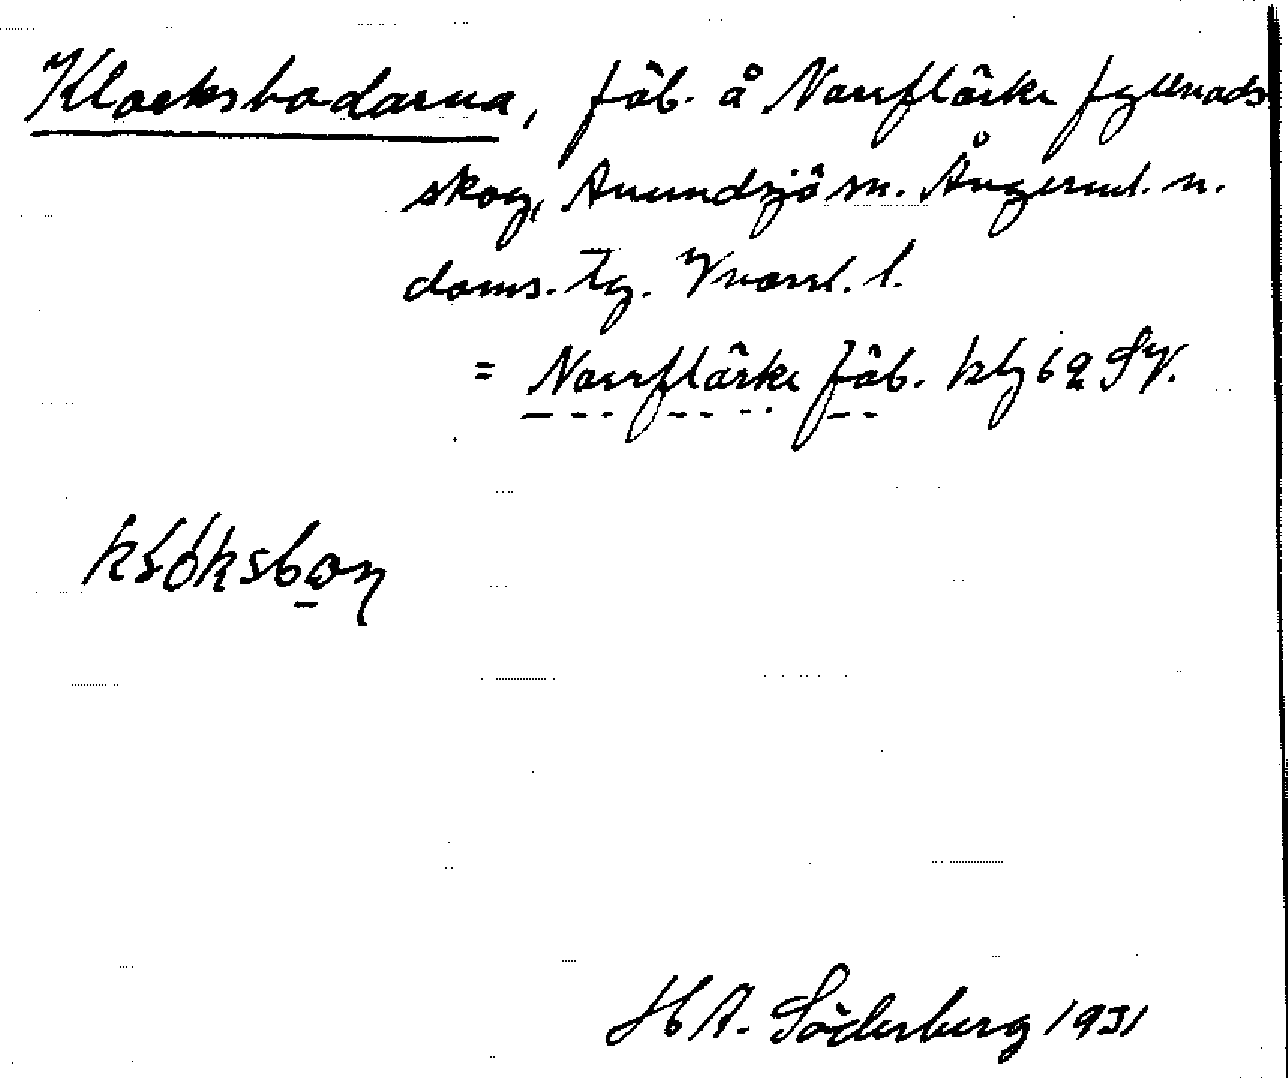 Klocksbodarna, fäb. å Norrflärke fyllnads
skog, Anundsjö sn. Ångerml. n.
doms. tg. Vnorrl. l.
= Norrflärke fäb. kbg 62 SV.
klóksbon
H A. Söderberg 1931